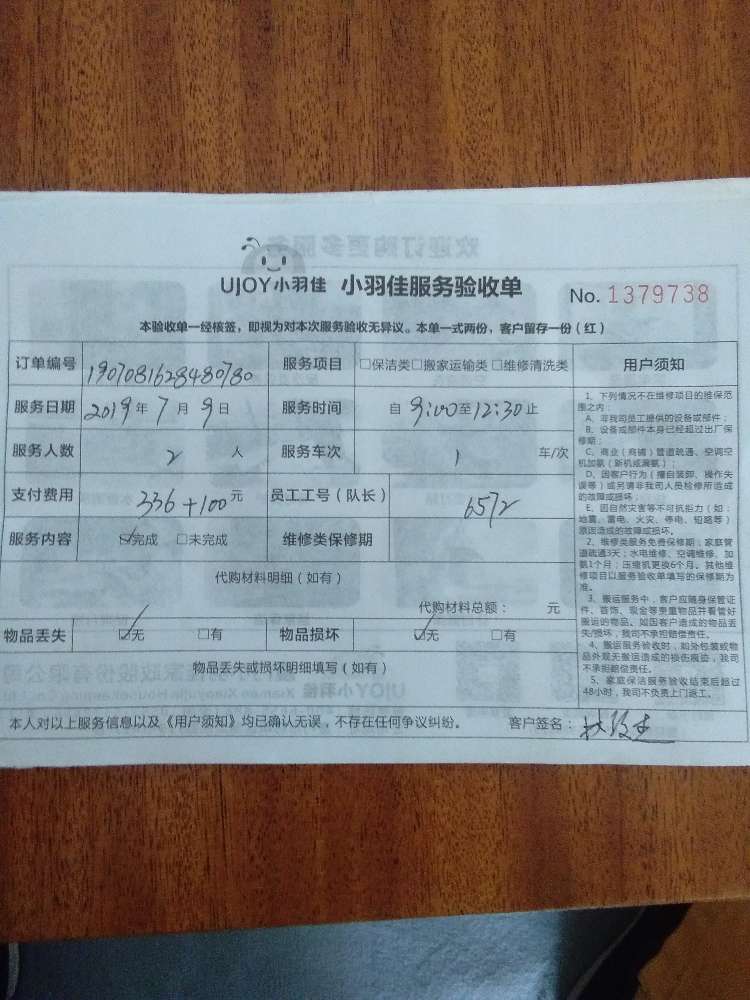 UJOY小羽佳 小羽佳服务验收单 No. 1379738
本验收单一经核签，即视为对本次服务验收无异议。本单一式两份，客户留存一份（红）
订单编号 1907081628480780 服务项目 □保洁类□搬家运输类□维修清洗类
服务日期 2019年7月9日 服务时间 自9:00至12:30止
服务人数 2 人 服务车次 1 车/次
支付费用 336+100元 员工工号（队长） 6572
服务内容 ☑完成 □未完成 维修类保修期
代购材料明细（如有）
代购材料总额： 元
物品丢失 ☑无 □有 物品损坏 ☑无 □有
物品丢失或损坏明细填写（如有）
用户须知
1、下列情况不在维修项目的维保范
围之内：
A、非我司员工提供的设备或部件；
B、设备或部件本身已经超过出厂保
修期；
C、商业（商铺）管道疏通、空调空
机加氨（新机或漏氨）；
D、因客户行为（擅自装卸、操作失
误等）或另请非我司人员检修所造成
的故障或损坏；
E、因自然灾害等不可抗拒力（如：
地震、雷电、火灾、停电、短路等）
原因造成的故障或损坏。
2、维修类服务免费保修期：家庭管
道疏通3天；水电维修、空调维修、加
氨1个月；压缩机更换6个月。其他维
修项目以服务验收单填写的保修期为
准。
3、搬运服务中，客户应随身保管证
件、首饰、现金等贵重物品并看管好
搬运的物品。如因客户造成的物品丢
失/损坏，我司不承担赔偿责任。
4、搬运服务验收时，如外包装或物
品外观无搬运造成的损伤痕迹，我司不
承担赔偿责任。
5、家庭保洁服务验收结束后超过
48小时，我司不负责上门返工。
本人对以上服务信息以及《用户须知》均已确认无误，不存在任何争议纠纷。 客户签名：